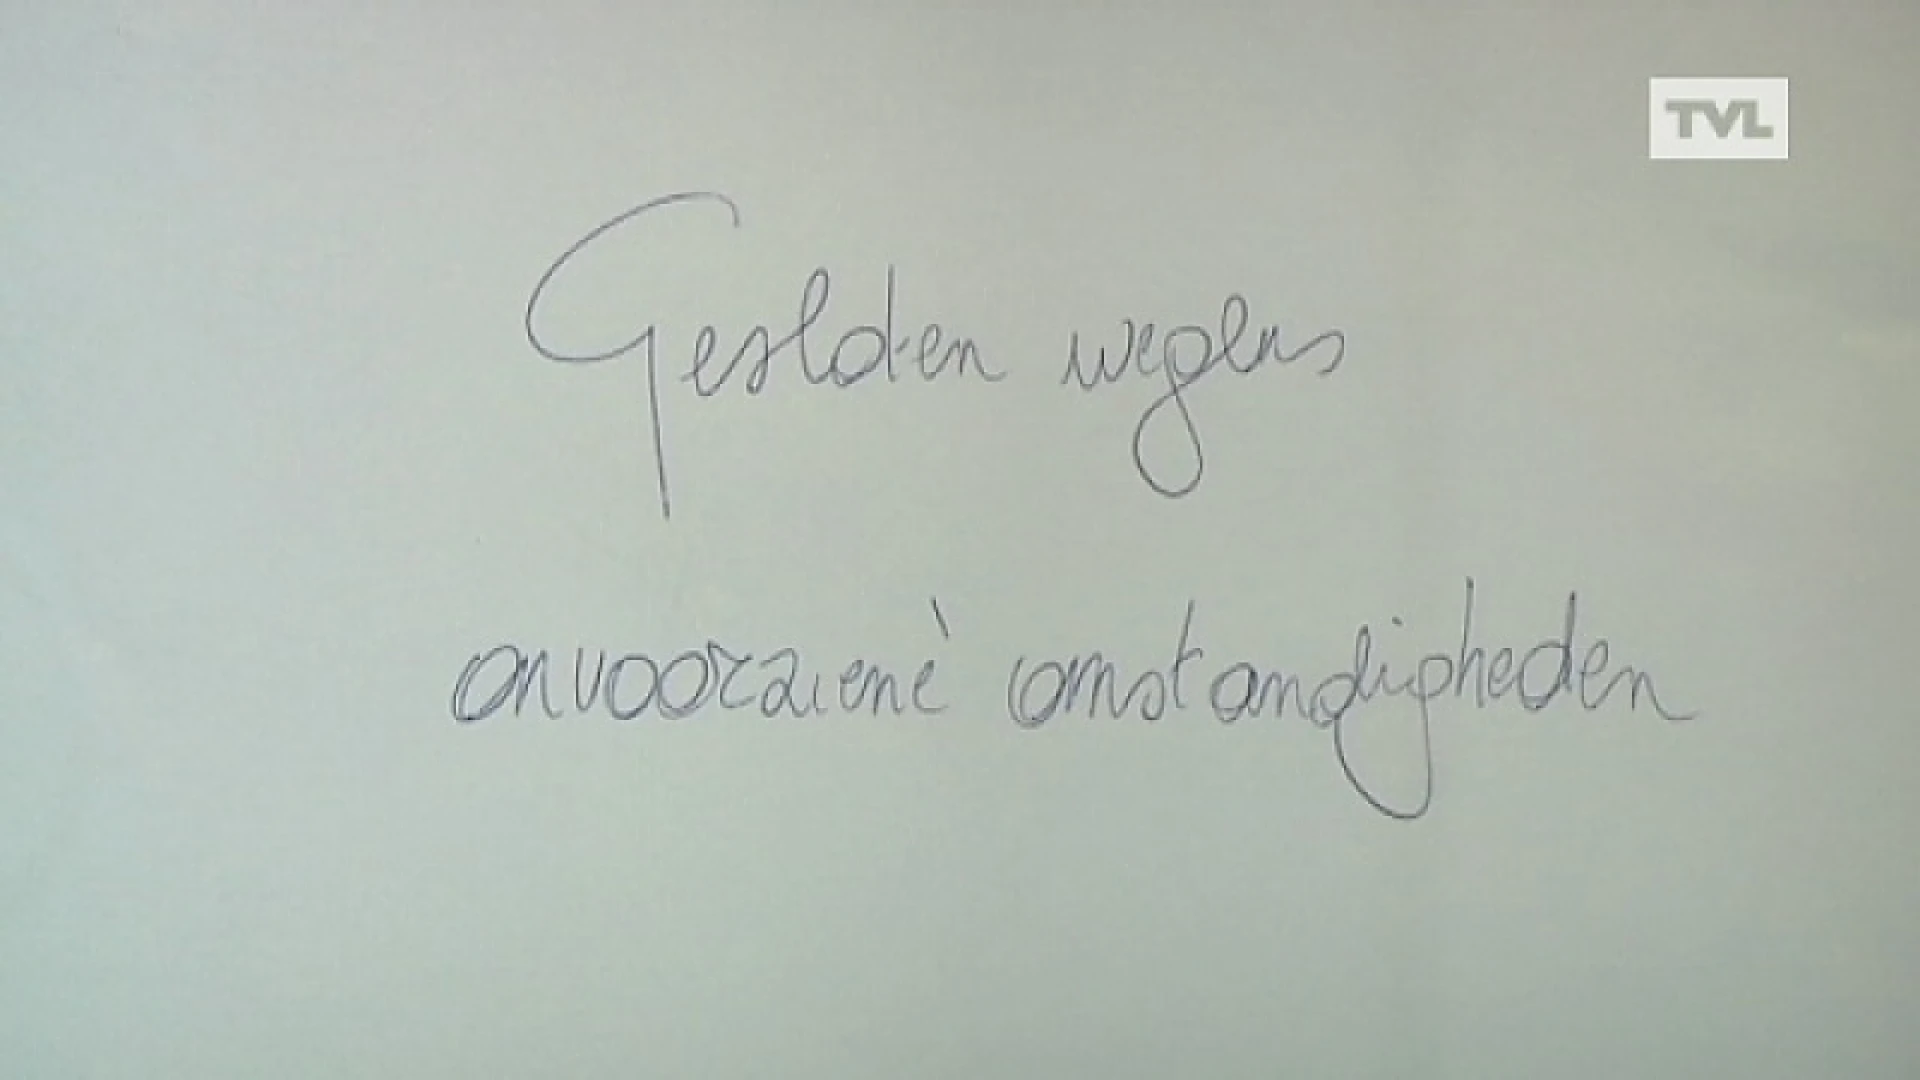 TVL
Gesloten wegens
onvoorziene omstandigheden